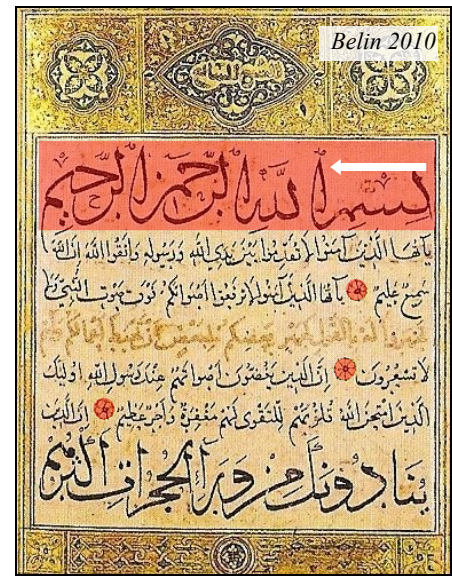 Belin 2010
بسم الله الرحمن الرحيم
يأيها الذين آمنوا لا تقدموا بين يدي الله ورسوله واتقوا الله إن الله
سميع عليم يأيها الذين آمنوا لا ترفعوا أصواتكم فوق صوت النبي ولا
تجهروا له بالقول كجهر بعضكم لبعض أن تحبط أعمالكم وأنتم
لا تشعرون إن الذين يغضون أصواتهم عند رسول الله أولئك
الذين امتحن الله قلوبهم للتقوى لهم مغفرة وأجر عظيم إن الذين
ينادونك من وراء الحجرات أكثرهم